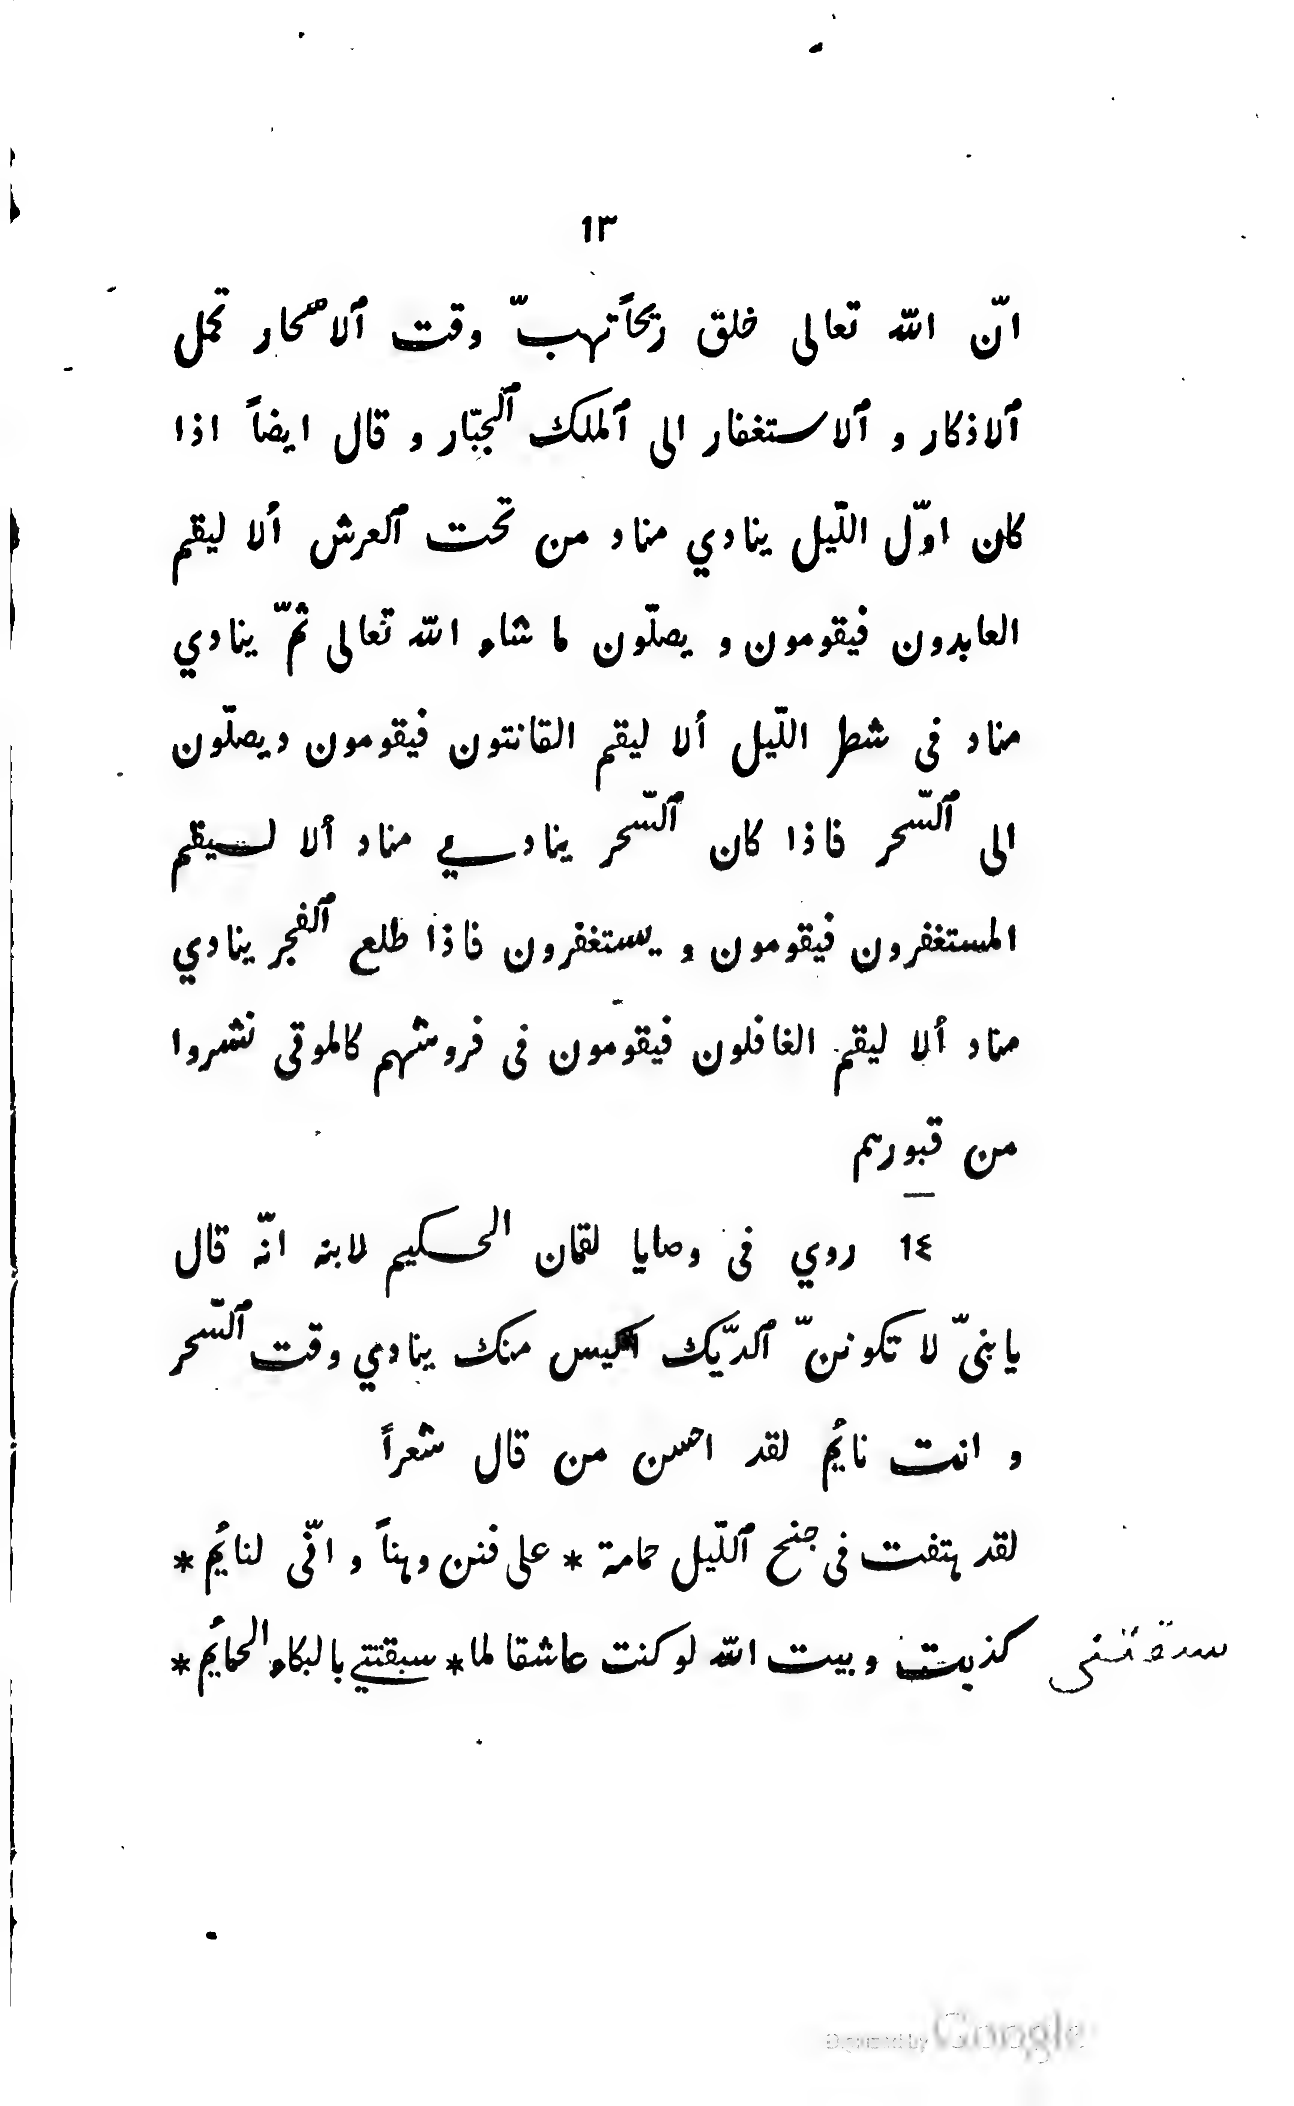 ١٣
انّ الله تعالى خلق ريحاً تهبّ وقت ٱلاسحار تحمل
ٱلاذكار و ٱلاستغفار الى ٱلملك ٱلجبّار و قال ايضاً اذا
كان اوّل اللّيل ينادي مناد من تحت ٱلعرش ألا ليقم
العابدون فيقومون و يصلّون ما شاء الله تعالى ثمّ ينادي
مناد فى شطر اللّيل ألا ليقم القانتون فيقومون ويصلّون
الى ٱلسّحر فاذا كان ٱلسّحر ينادي مناد ألا ليقم
المستغفرون فيقومون و يستغفرون فاذا طلع ٱلفجر ينادي
مناد ألا ليقم الغافلون فيقومون فى فروشهم كالموتى نشروا
من قبورهم
١٤ روي فى وصايا لقمان الحكيم لابنه انّه قال
يا بنىّ لا تكوننّ ٱلدّيك اكيس منك ينادي وقت ٱلسّحر
و انت نائم لقد احسن من قال شعراً
لقد هتفت فى جنح ٱللّيل حمامة * على فنن وهناً و انّى لنائم *
كذبت وبيت الله لو كنت عاشقا لما * سبقتني بالبكاء الحمائم *
سبقتنى
Digitized by Google